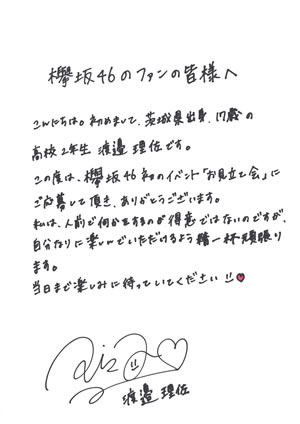 欅坂46のファンの皆様へ
こんにちは。初めまして、茨城県出身、17歳の
高校2年生 渡邉 理佐です。
この度は、欅坂46初のイベント「お見立て会」に
ご応募して頂き、ありがとうございます。
私は、人前で何かをするのが得意ではないのですが、
自分なりに楽しんでいただけるよう精一杯頑張り
ます。
当日まで楽しみに待っていてください!!
Risa
渡邉 理佐